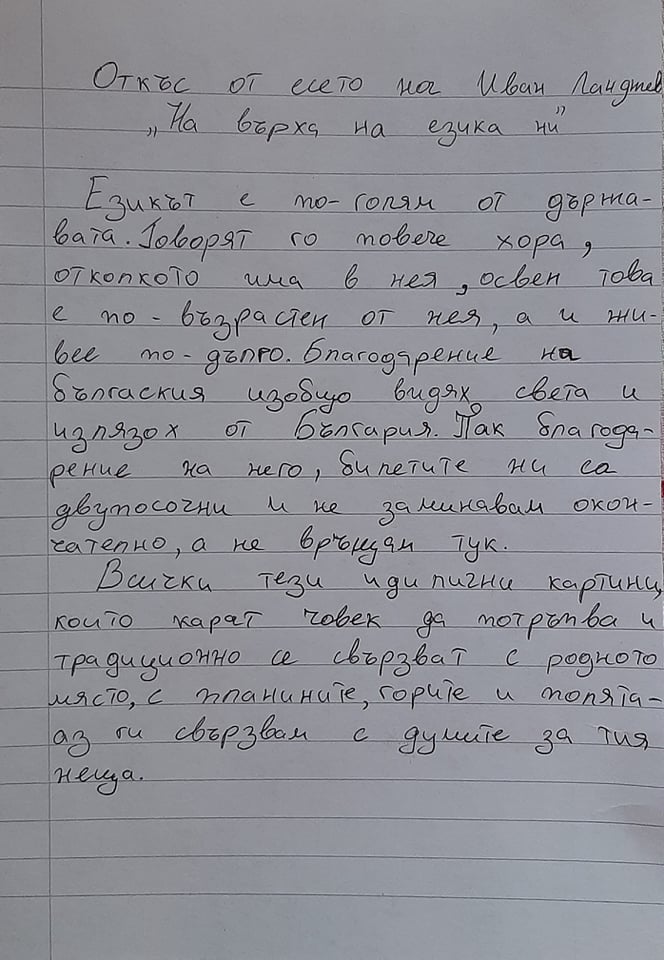 Откъс от есето на Иван Ланджев
„На върха на езика ни”
Езикът е по-голям от държа-
вата. Говорят го повече хора,
отколкото има в нея, освен това
е по-възрастен от нея, а и жи-
вее по-дълго. Благодарение на
бългаския изобщо видях света и
излязох от България. Пак благода-
рение на него, билетите ни са
двупосочни и не заминавам окон-
чателно, а не връщам тук.
Всички тези идилични картини,
които карат човек да потръпва и
традиционно се свързват с родното
място, с планините, горите и полята-
аз ги свързвам с думите за тия
неща.